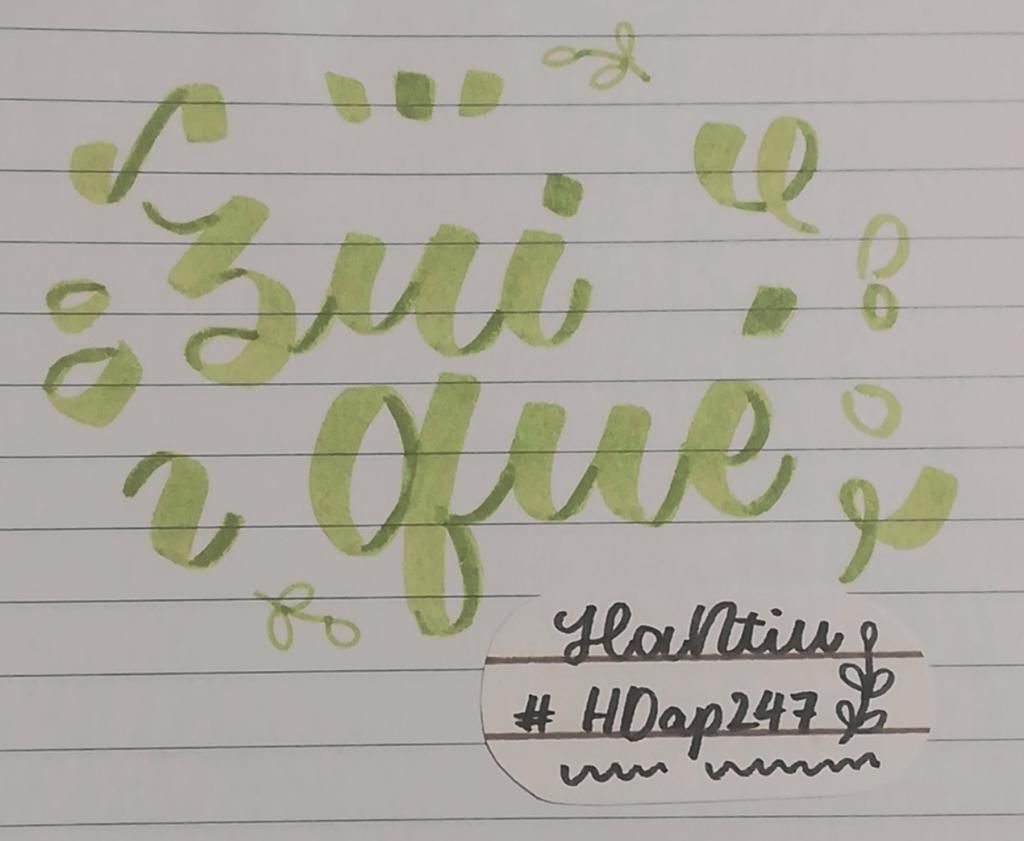 zui
que
HaNtiu
# HDap247